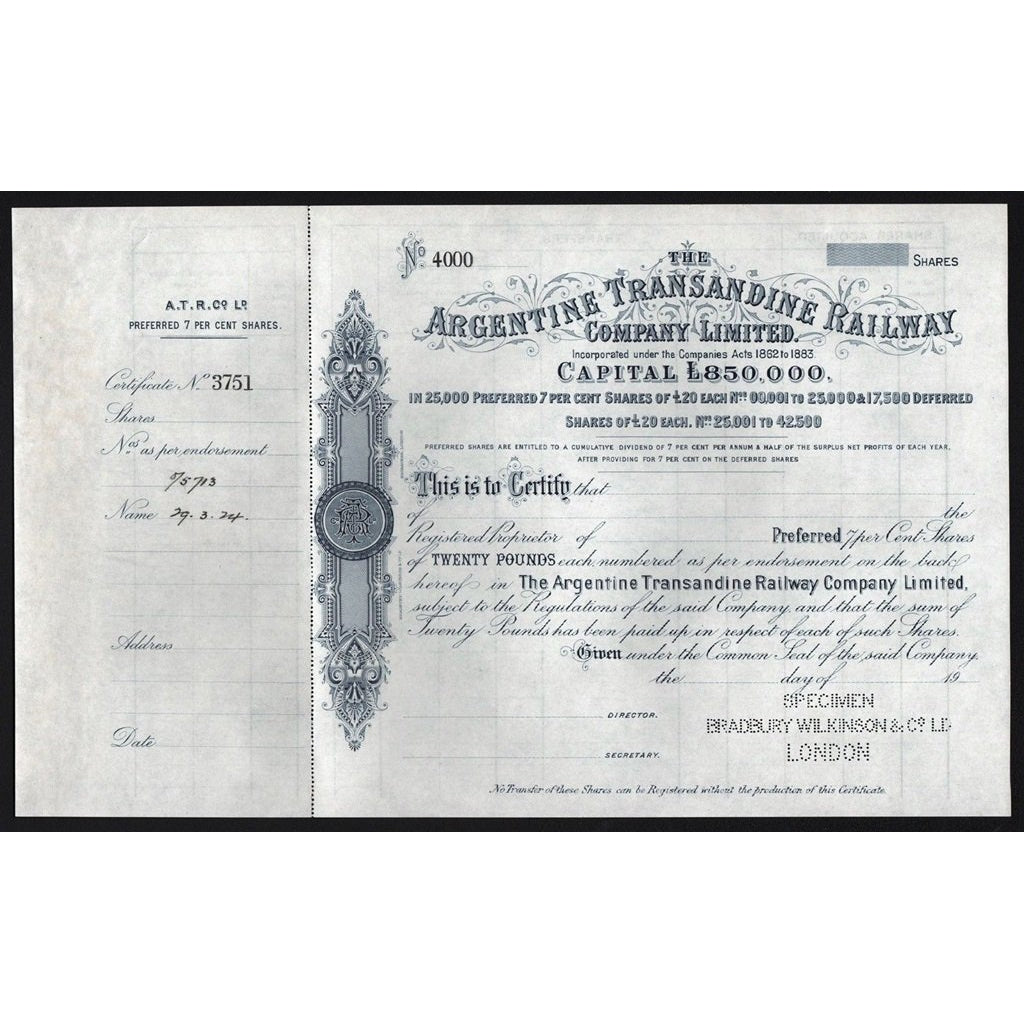 A.T.R.Co Ld
PREFERRED 7 PER CENT SHARES.
Certificate No 3751
Shares
Nos as per endorsement
Name 29.3.24.
Address
Date
No 4000
SHARES
THE
ARGENTINE TRANSANDINE RAILWAY
COMPANY LIMITED.
Incorporated under the Companies Acts 1862 to 1883.
CAPITAL £850,000.
IN 25,000 PREFERRED 7 PER CENT SHARES OF £20 EACH Nos 00,001 TO 25,000 & 17,500 DEFERRED
SHARES OF £20 EACH. Nos 25,001 TO 42,500
PREFERRED SHARES ARE ENTITLED TO A CUMULATIVE DIVIDEND OF 7 PER CENT PER ANNUM & HALF OF THE SURPLUS NET PROFITS OF EACH YEAR,
AFTER PROVIDING FOR 7 PER CENT ON THE DEFERRED SHARES
This is to Certify that
of the
Registered Proprietor of Preferred 7 per Cent Shares
of TWENTY POUNDS each, numbered as per endorsement on the back
hereof in The Argentine Transandine Railway Company Limited,
subject to the Regulations of the said Company, and that the sum of
Twenty Pounds has been paid up in respect of each of such Shares.
Given under the Common Seal of the said Company,
the day of 19
SPECIMEN
BRADBURY WILKINSON & Co LD
LONDON
DIRECTOR.
SECRETARY.
No Transfer of these Shares can be Registered without the production of this Certificate.